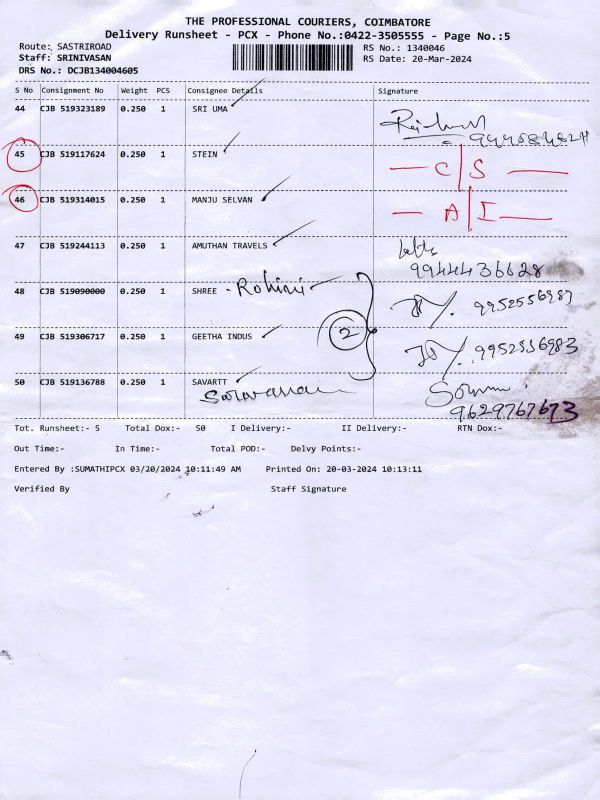 THE PROFESSIONAL COURIERS, COIMBATORE
Delivery Runsheet - PCX - Phone No.:0422-3505555 - Page No.:5
Route: SASTRIROAD RS No.: 1340046
Staff: SRINIVASAN RS Date: 20-Mar-2024
DRS No.: DCJB134004605
S No Consignment No Weight PCS Consignee Details Signature
44 CJB 519323189 0.250 1 SRI UMA
45 CJB 519117624 0.250 1 STEIN C/S
46 CJB 519314015 0.250 1 MANJU SELVAN A/I
47 CJB 519244113 0.250 1 AMUTHAN TRAVELS
9944436628
48 CJB 519090000 0.250 1 SHREE - Rohini 9952556983
49 CJB 519306717 0.250 1 GEETHA INDUS 2 9952556983
50 CJB 519136788 0.250 1 SAVARTT
Saravanan 9629767673
Tot. Runsheet:- 5 Total Dox:- 50 I Delivery:- II Delivery:- RTN Dox:-
Out Time:- In Time:- Total POD:- Delvy Points:-
Entered By :SUMATHIPCX 03/20/2024 10:11:49 AM Printed On: 20-03-2024 10:13:11
Verified By Staff Signature